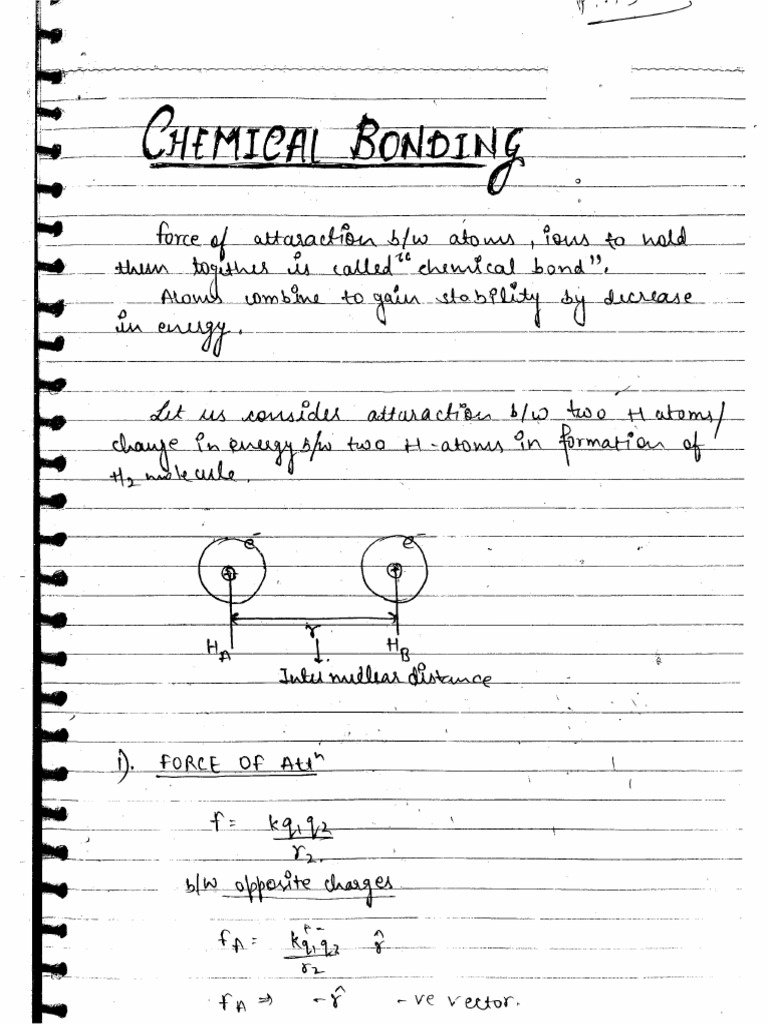 CHEMICAL BONDING
force of attaraction b/w atoms, ions to hold
them together is called "chemical bond".
Atoms combine to gain stability by decrease
in energy.
Let us consider attaraction b/w two H atoms/
change in energy b/w two H-atoms in formation of
H₂ molecule.
e⁻ e⁻
+ +
r
H_A H_B
Inter nuclear distance
1). FORCE OF Attⁿ
f = kq₁q₂
r₂.
b/w opposite charges
+ -
f_A = kq₁q₂ r̂
r₂
f_A ⇒ -r̂ -ve vector.